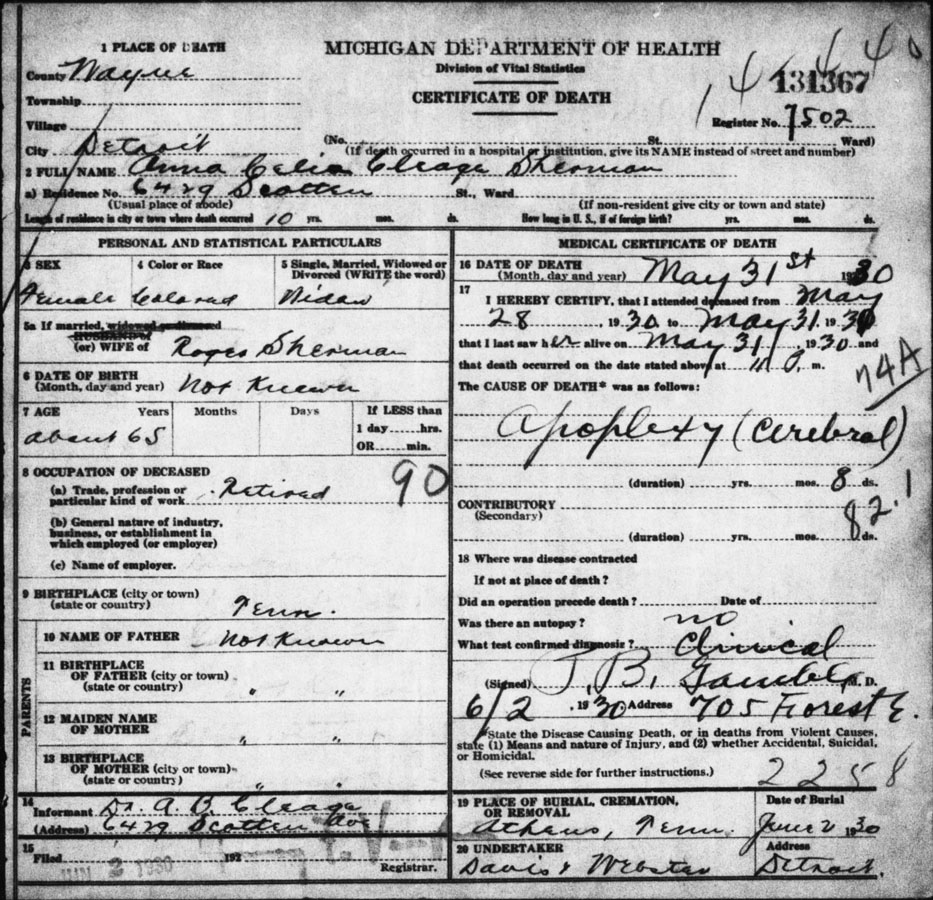 1 PLACE OF DEATH
MICHIGAN DEPARTMENT OF HEALTH
Division of Vital Statistics
CERTIFICATE OF DEATH
14 4 40
131367
Register No. 7502
County Wayne
Township
Village
City Detroit
(No. St. Ward)
(If death occurred in a hospital or institution, give its NAME instead of street and number)
2 FULL NAME Anna Celia Cleage Sherman
a) Residence No. 6429 Scotten St., Ward.
(Usual place of abode) (If non-resident give city or town and state)
Length of residence in city or town where death occurred 10 yrs. mos. ds. How long in U. S., if of foreign birth? yrs. mos. ds.
PERSONAL AND STATISTICAL PARTICULARS
3 SEX
Female
4 Color or Race
Colored
5 Single, Married, Widowed or
Divorced (WRITE the word)
Widow
5a If married, widowed or divorced
HUSBAND of
(or) WIFE of Roger Sherman
6 DATE OF BIRTH
(Month, day and year) Not Known
7 AGE Years Months Days
about 65
If LESS than
1 day hrs.
OR min.
8 OCCUPATION OF DECEASED
(a) Trade, profession or
particular kind of work Retired
90
(b) General nature of industry,
business, or establishment in
which employed (or employer)
(c) Name of employer.
9 BIRTHPLACE (city or town)
(state or country) Tenn.
PARENTS
10 NAME OF FATHER Not Known
11 BIRTHPLACE
OF FATHER (city or town)
(state or country) " "
12 MAIDEN NAME
OF MOTHER " "
13 BIRTHPLACE
OF MOTHER (city or town)
(state or country) " "
14
Informant Dr. A. B. Cleage
(Address) 6429 Scotten Ave
15
Filed JUN 2 1930 192
Registrar.
MEDICAL CERTIFICATE OF DEATH
16 DATE OF DEATH
(Month, day and year) May 31st 1930
17
I HEREBY CERTIFY, that I attended deceased from May
28, 1930 to May 31, 1930
that I last saw her alive on May 31, 1930 and
that death occurred on the date stated above at 11 m.
The CAUSE OF DEATH* was as follows:
74A
Apoplexy (Cerebral)
(duration) yrs. mos. 8 ds.
CONTRIBUTORY
(Secondary)
82.1
(duration) yrs. mos. ds.
18 Where was disease contracted
If not at place of death?
Did an operation precede death? Date of
Was there an autopsy? no
What test confirmed diagnosis? Clinical
(Signed) B. Gamble M. D.
6/2, 1930 Address 705 Forest E.
*State the Disease Causing Death, or in deaths from Violent Causes,
state (1) Means and nature of Injury, and (2) whether Accidental, Suicidal,
or Homicidal.
(See reverse side for further instructions.)
2258
19 PLACE OF BURIAL, CREMATION,
OR REMOVAL
Athens, Tenn.
Date of Burial
June 2 1930
20 UNDERTAKER
Davis & Webster
Address
Detroit